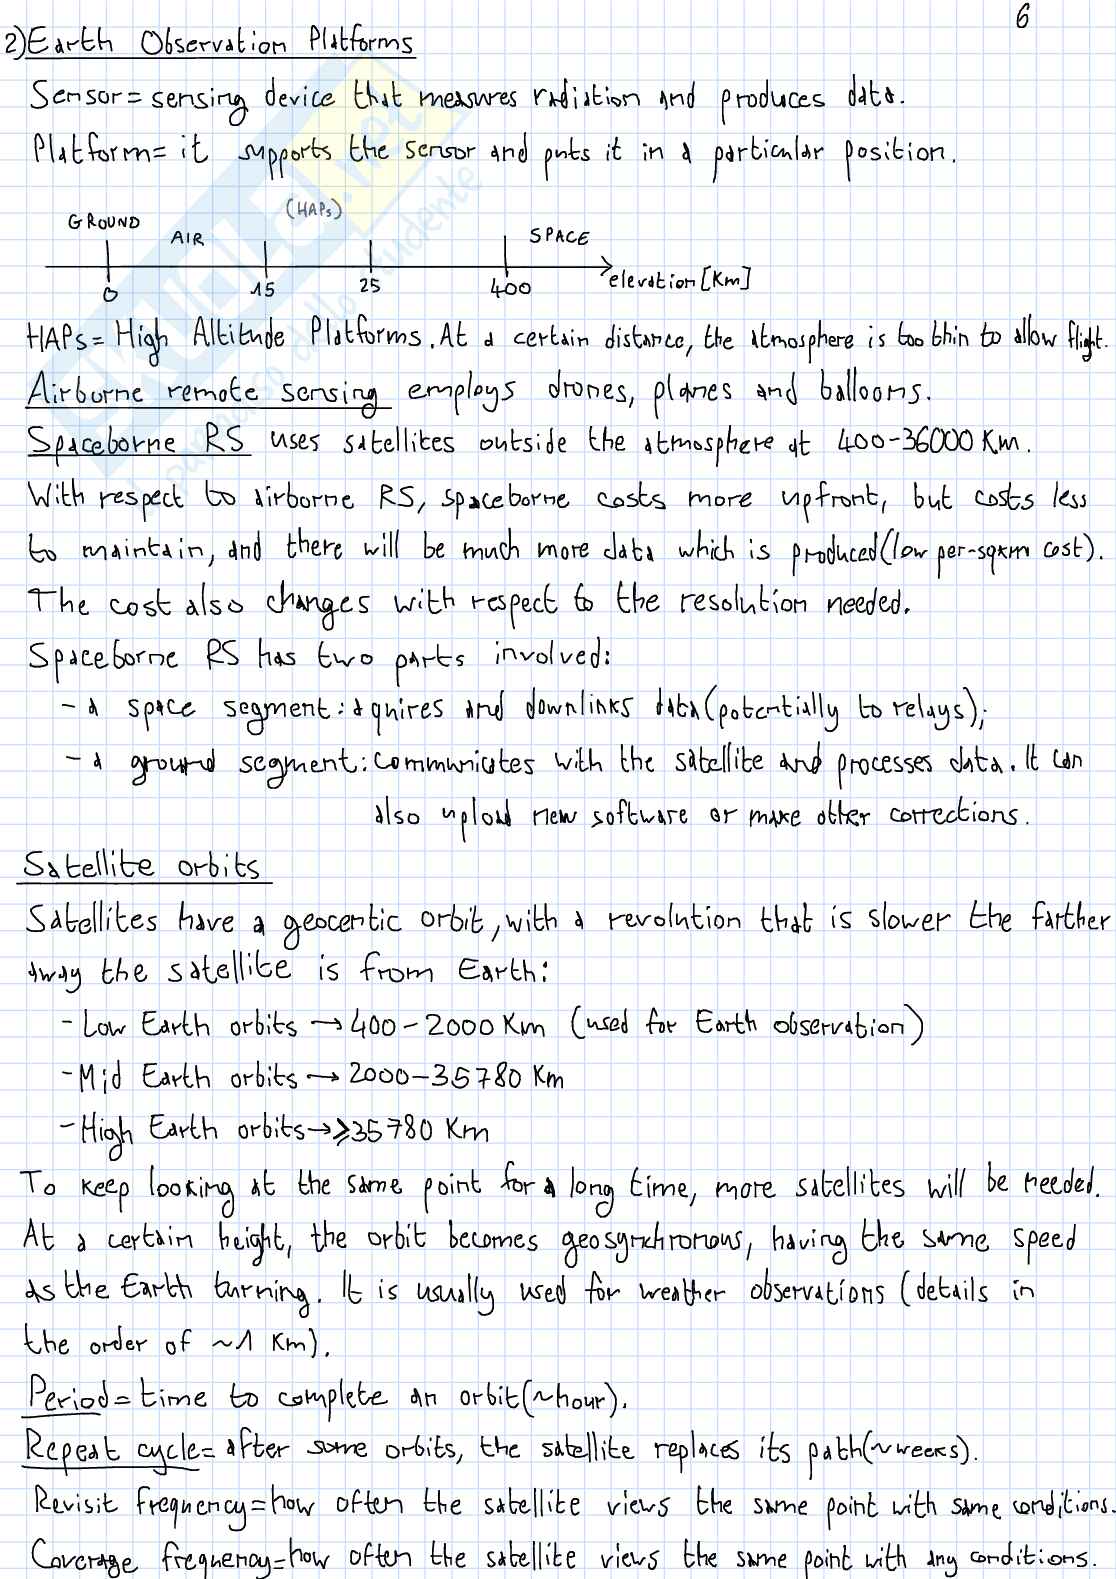 6
2) Earth Observation Platforms
Sensor = sensing device that measures radiation and produces data.
Platform = it supports the sensor and puts it in a particular position.
GROUND AIR (HAPs) SPACE
0 15 25 400 elevation [Km]
HAPs = High Altitude Platforms. At a certain distance, the atmosphere is too thin to allow flight.
Airborne remote sensing employs drones, planes and balloons.
Spaceborne RS uses satellites outside the atmosphere at 400-36000 Km.
With respect to airborne RS, spaceborne costs more upfront, but costs less
to maintain, and there will be much more data which is produced (low per-sqkm cost).
The cost also changes with respect to the resolution needed.
Spaceborne RS has two parts involved:
- a space segment: aquires and downlinks data (potentially to relays);
- a ground segment: communicates with the satellite and processes data. It can
also upload new software or make other corrections.
Satellite orbits
Satellites have a geocentic orbit, with a revolution that is slower the farther
away the satellite is from Earth:
- Low Earth orbits → 400-2000 Km (used for Earth observation)
- Mid Earth orbits → 2000-35780 Km
- High Earth orbits → ⩾35780 Km
To keep looking at the same point for a long time, more satellites will be needed.
At a certain height, the orbit becomes geosynchronous, having the same speed
as the Earth turning. It is usually used for weather observations (details in
the order of ~1 Km).
Period = time to complete an orbit (~hour).
Repeat cycle = after some orbits, the satellite replaces its path (~weeks).
Revisit frequency = how often the satellite views the same point with same conditions.
Coverage frequency = how often the satellite views the same point with any conditions.